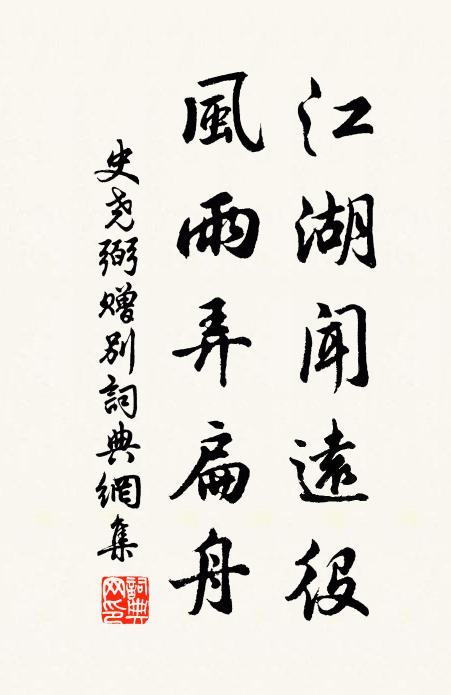 江湖聞遠役
風雨弄扁舟
史堯弼贈別詞典網集
詞典網印